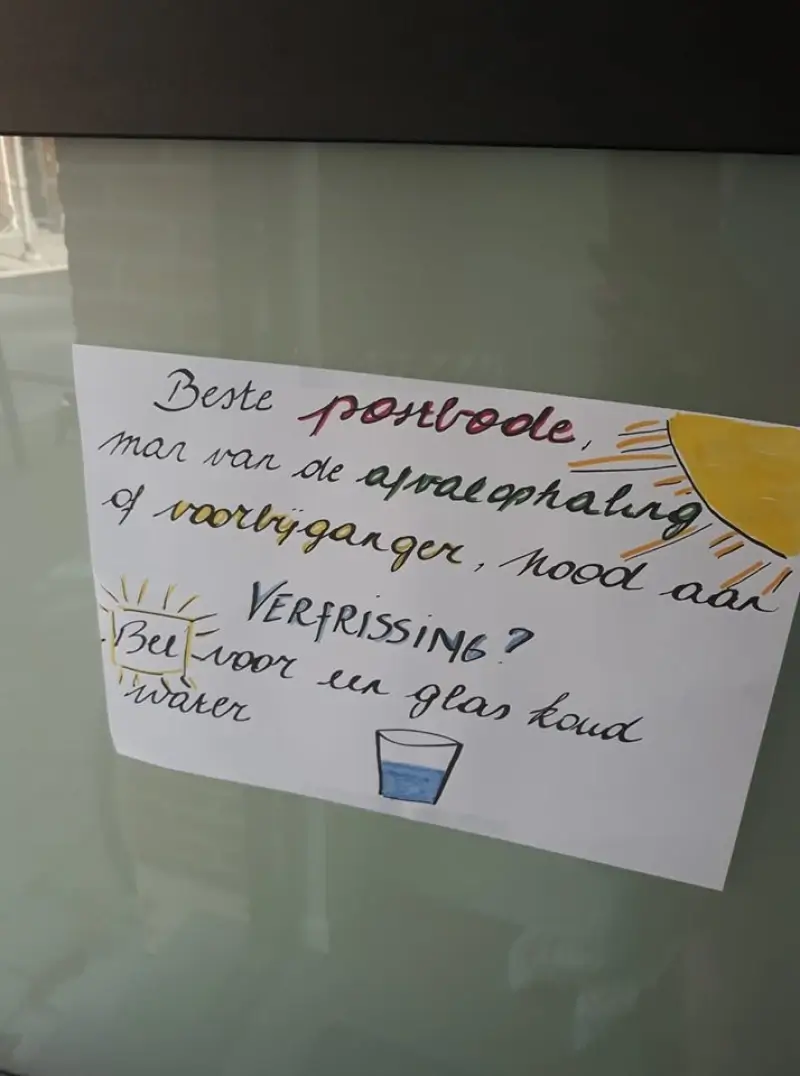 Beste postbode,
man van de afvalophaling
of voorbijganger, nood aan
VERFRISSING?
Bel voor een glas koud
water